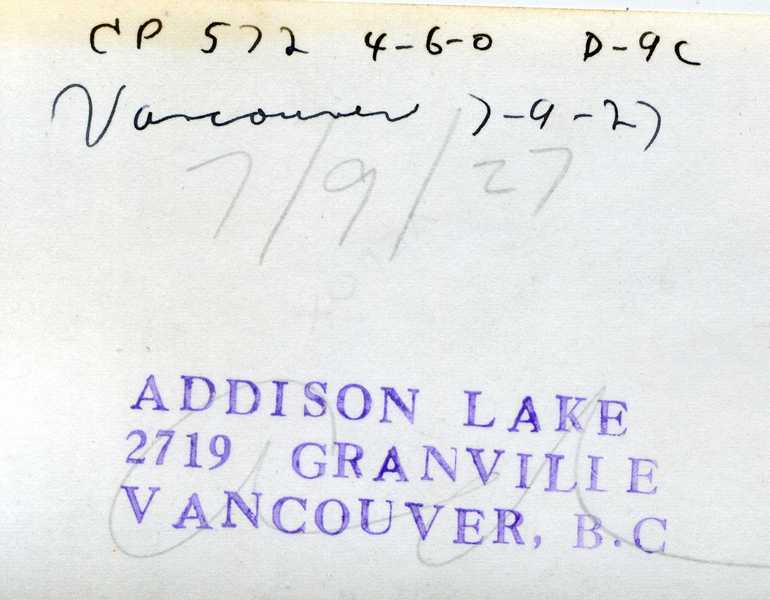 CP 572 4-6-0 D-9c
Vancouver 7-9-27
7/9/27
ADDISON LAKE
2719 GRANVILLE
VANCOUVER, B.C